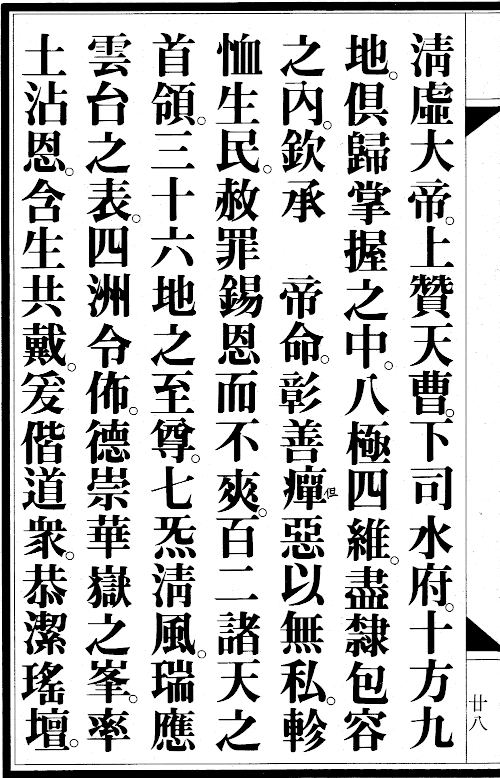 淸虛大帝。上贊天曹。下司水府。十方九
地。俱歸掌握之中。八極四維。盡隸包容
之內。欽承　帝命。彰善癉但惡以無私。軫
恤生民。赦罪錫恩而不爽。百二諸天之
首領。三十六地之至尊。七炁淸風。瑞應
雲台之表。四洲令佈。德崇華嶽之峯。率
土沾恩。含生共戴。爰偕道衆。恭潔瑤壇。
廿八